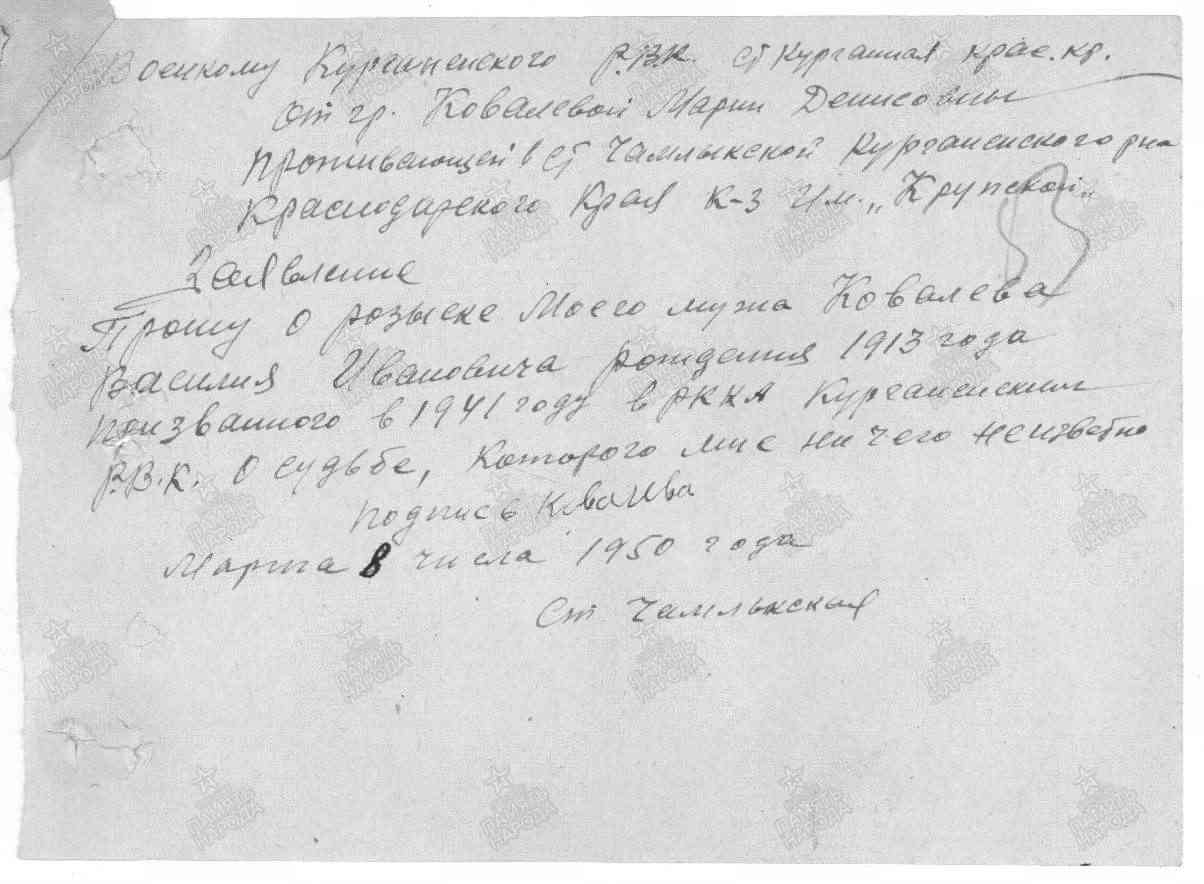 Военкому Курганенского Р.В.К. ст Курганная крас.кр.
От гр. Ковалевой Марии Денисовны
проживающей в ст Чамлыкской Курганенского рна
Краснодарского Края к-з Им. „Крупской„
Заявление
Прошу о розыске Моего мужа Ковалева
Василия Ивановича рождения 1913 года
призванного в 1941 году в РККА Курганенским
Р.В.К. О судьбе, которого мне ни чего неизветно
подпись
Марта 8 числа 1950 года
Ст Чамлыкская